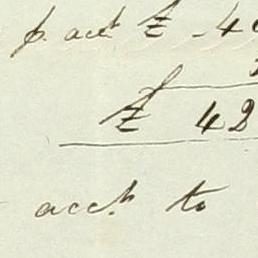 p. acct £ 4
£ 42
acct to